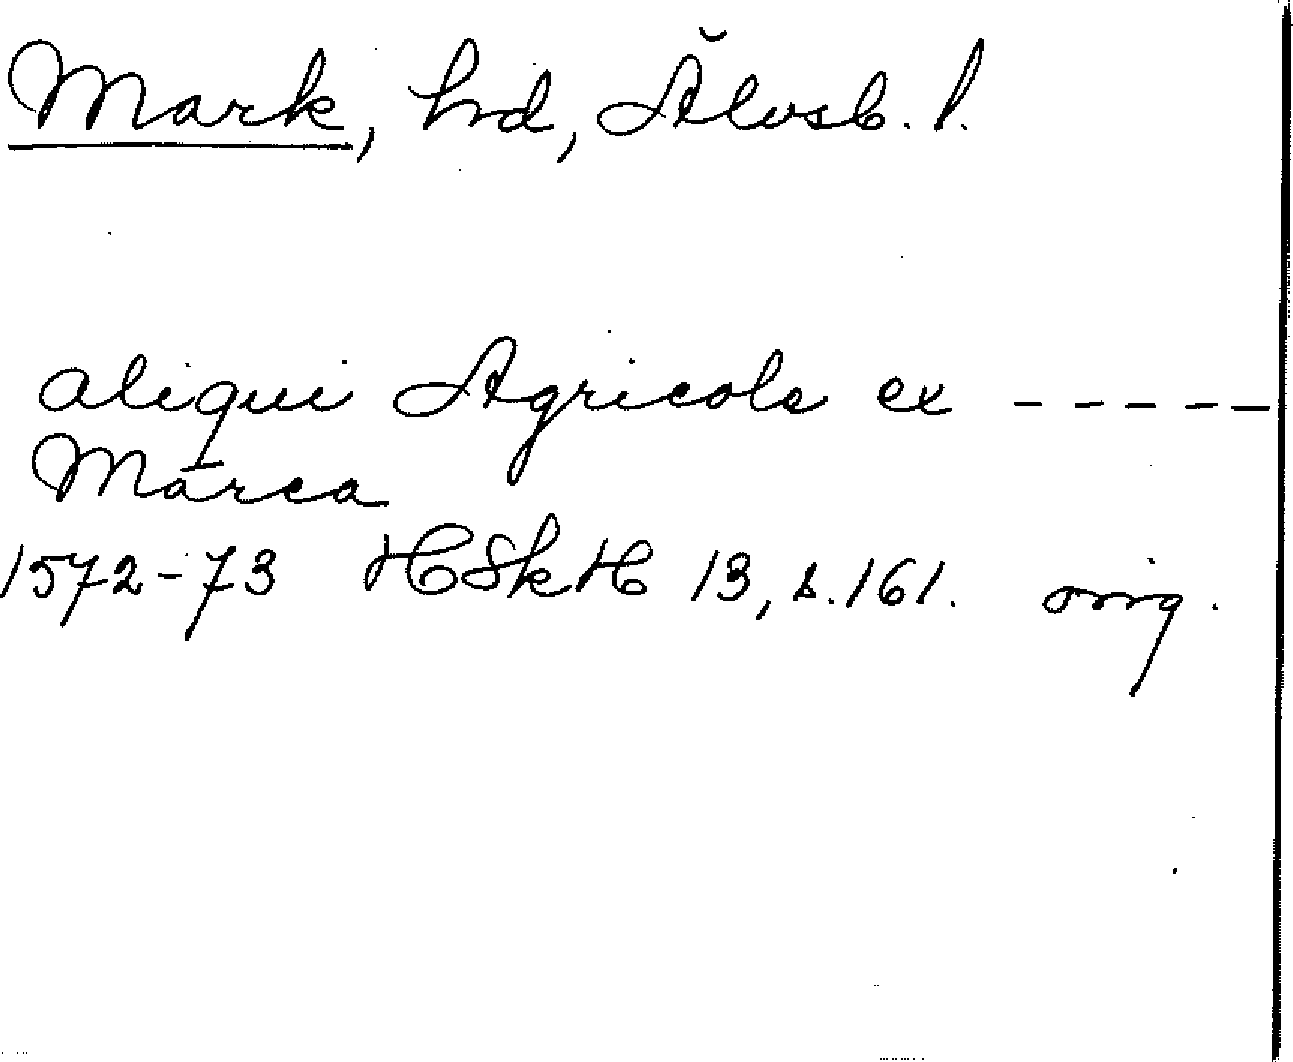 Mark, hd, Älvsb. l.
aliqui Agricole ex -----
Marca
1572-73 HSkH 13, s. 161. orig.